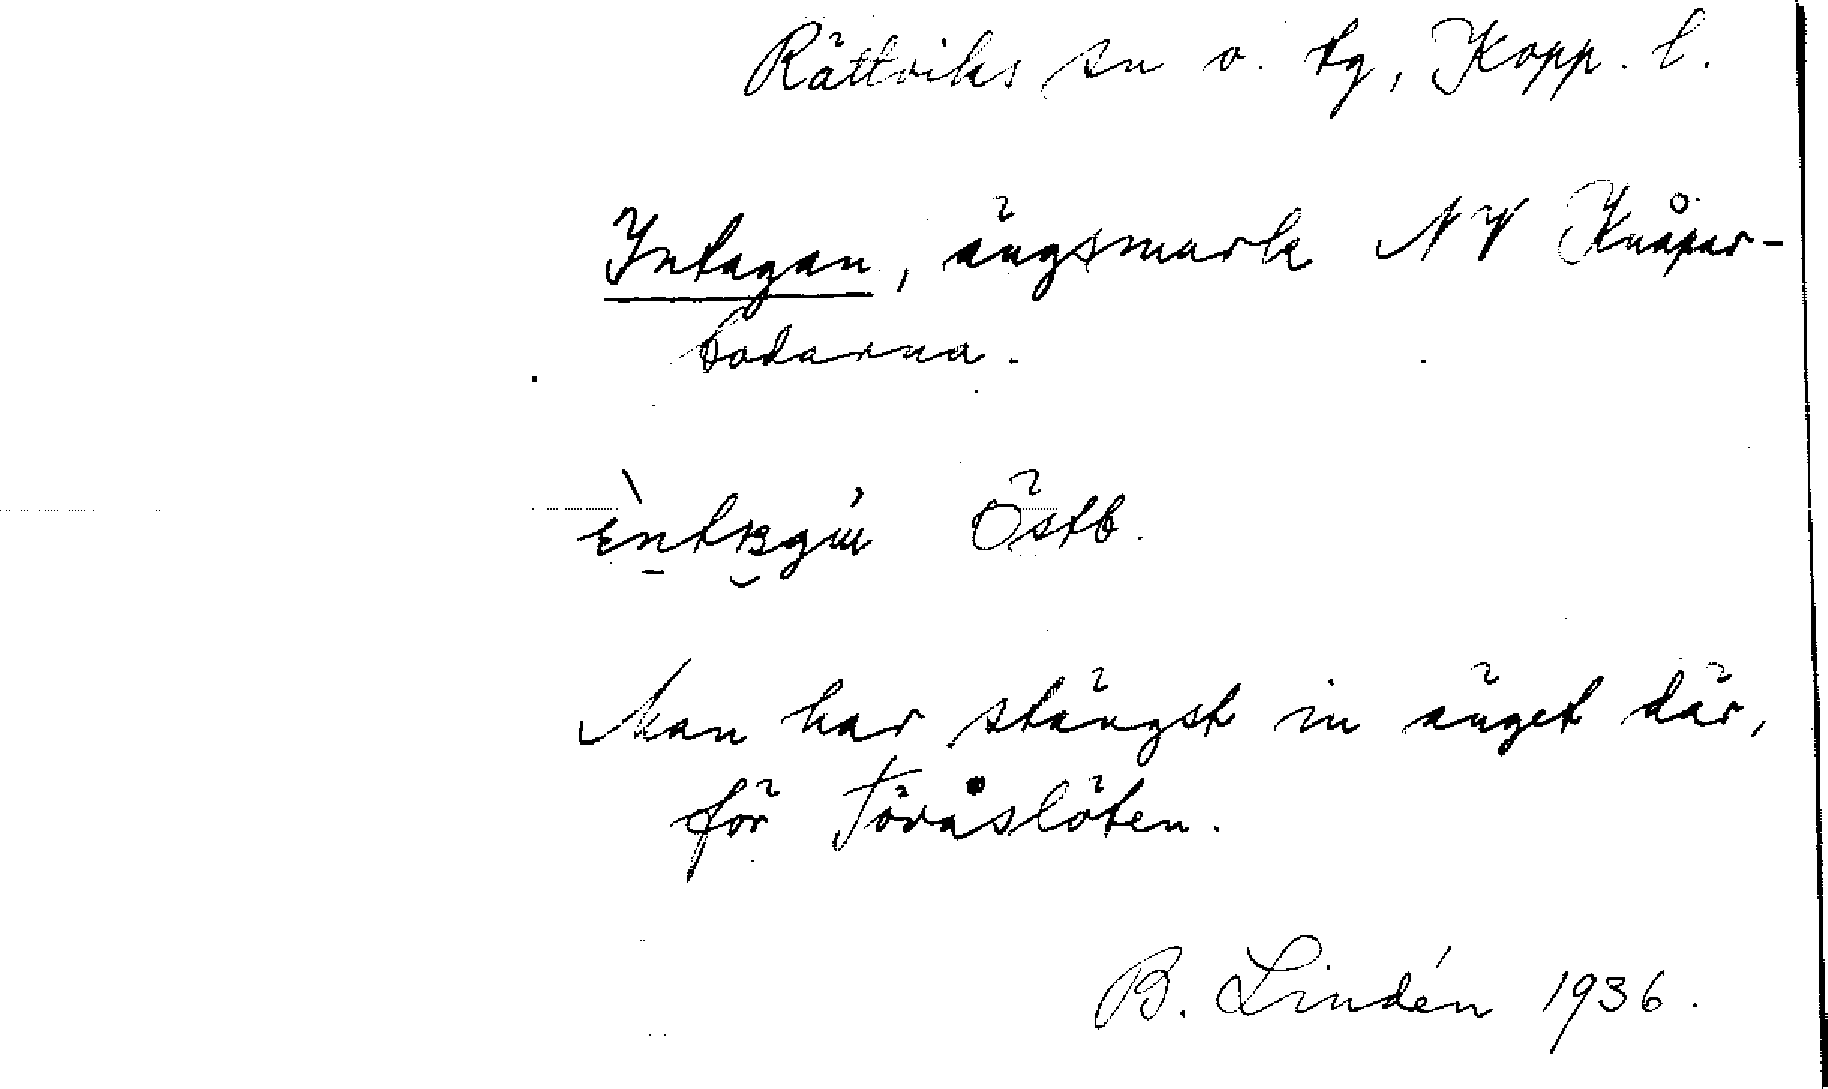 Rättviks sn o. tg, Kopp. l.
Intagan, ängsmark NV Knåpar-
bodarna.
Östb.
Man har stängst in änget där,
för Töråslöten.
B. Lindén 1936.